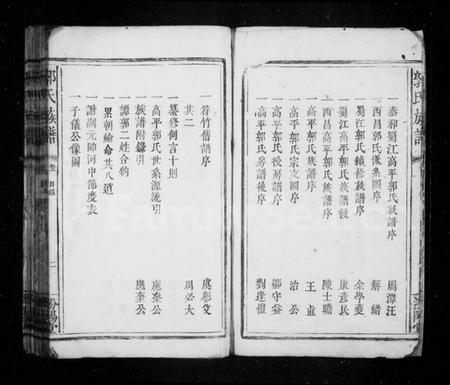 郭氏族譜
一泰和蜀江高平郭氏族譜序 周潭汪
一西昌郭氏漁集圖序 解縉
一蜀江郭氏續修族譜序 余學夔
一蜀江高平郭氏族譜後 康彥民
一西昌高平郭氏族譜序 陳士聰
一高平郭氏族譜序 王直
一高平郭氏宗支圖序 治公
一高平郭氏後房譜序 鄒守益
一高平郭氏房譜後序 劉逢愷
一符竹舊譜序 虞彪文
其二 周必大
一纂修例言十則
一高平郭氏世系源流引 應奎公
族譜附錄引 應奎公
一譚郭二姓合約
一累朝綸命共八道
一謝副元帥河中節度表
一子儀公像圖
郭氏族譜
目錄
二
汾陽堂